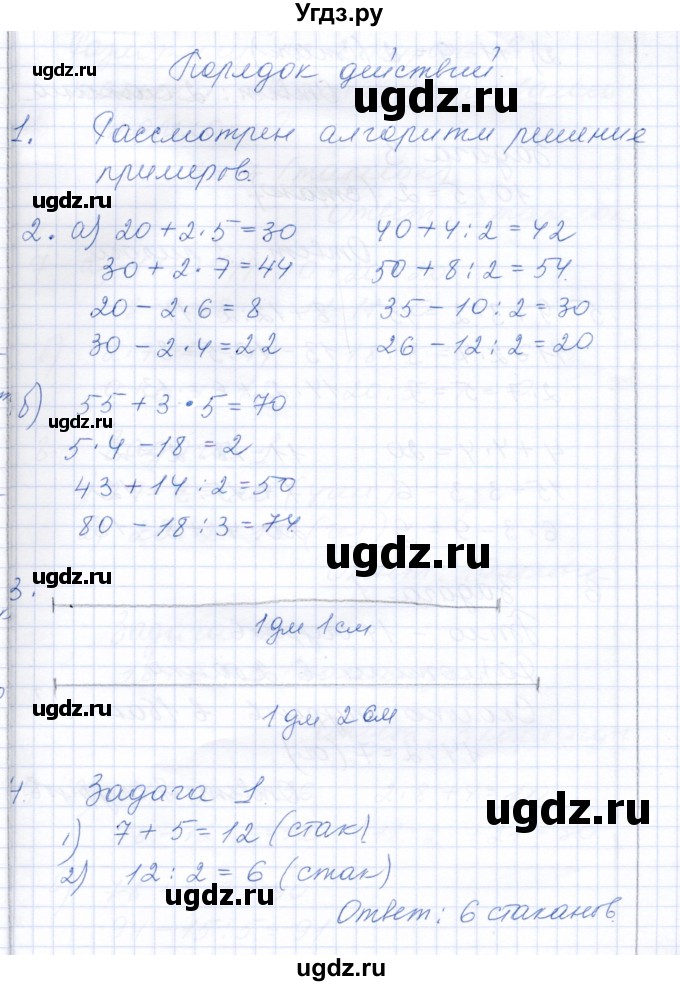 Угдз.ру
Порядок действий.
1. Рассмотрен алгоритм решение
примеров.
2. а) 20 + 2 · 5 = 30    40 + 4 : 2 = 42
30 + 2 · 7 = 44    50 + 8 : 2 = 54.
20 - 2 · 6 = 8    35 - 10 : 2 = 30
30 - 2 · 4 = 22    26 - 12 : 2 = 20
б) 55 + 3 · 5 = 70
5 · 4 - 18 = 2
43 + 14 : 2 = 50
80 - 18 : 3 = 74.
3.
1 дм 1 см
1 дм 2 см
4. Задача 1.
1) 7 + 5 = 12 (стак)
2) 12 : 2 = 6 (стак)
Ответ: 6 стаканов.
ugdz.ru
ugdz.ru
ugdz.ru
ugdz.ru
ugdz.ru
ugdz.ru
ugdz.ru
ugdz.ru
ugdz.ru
ugdz.ru
ugdz.ru